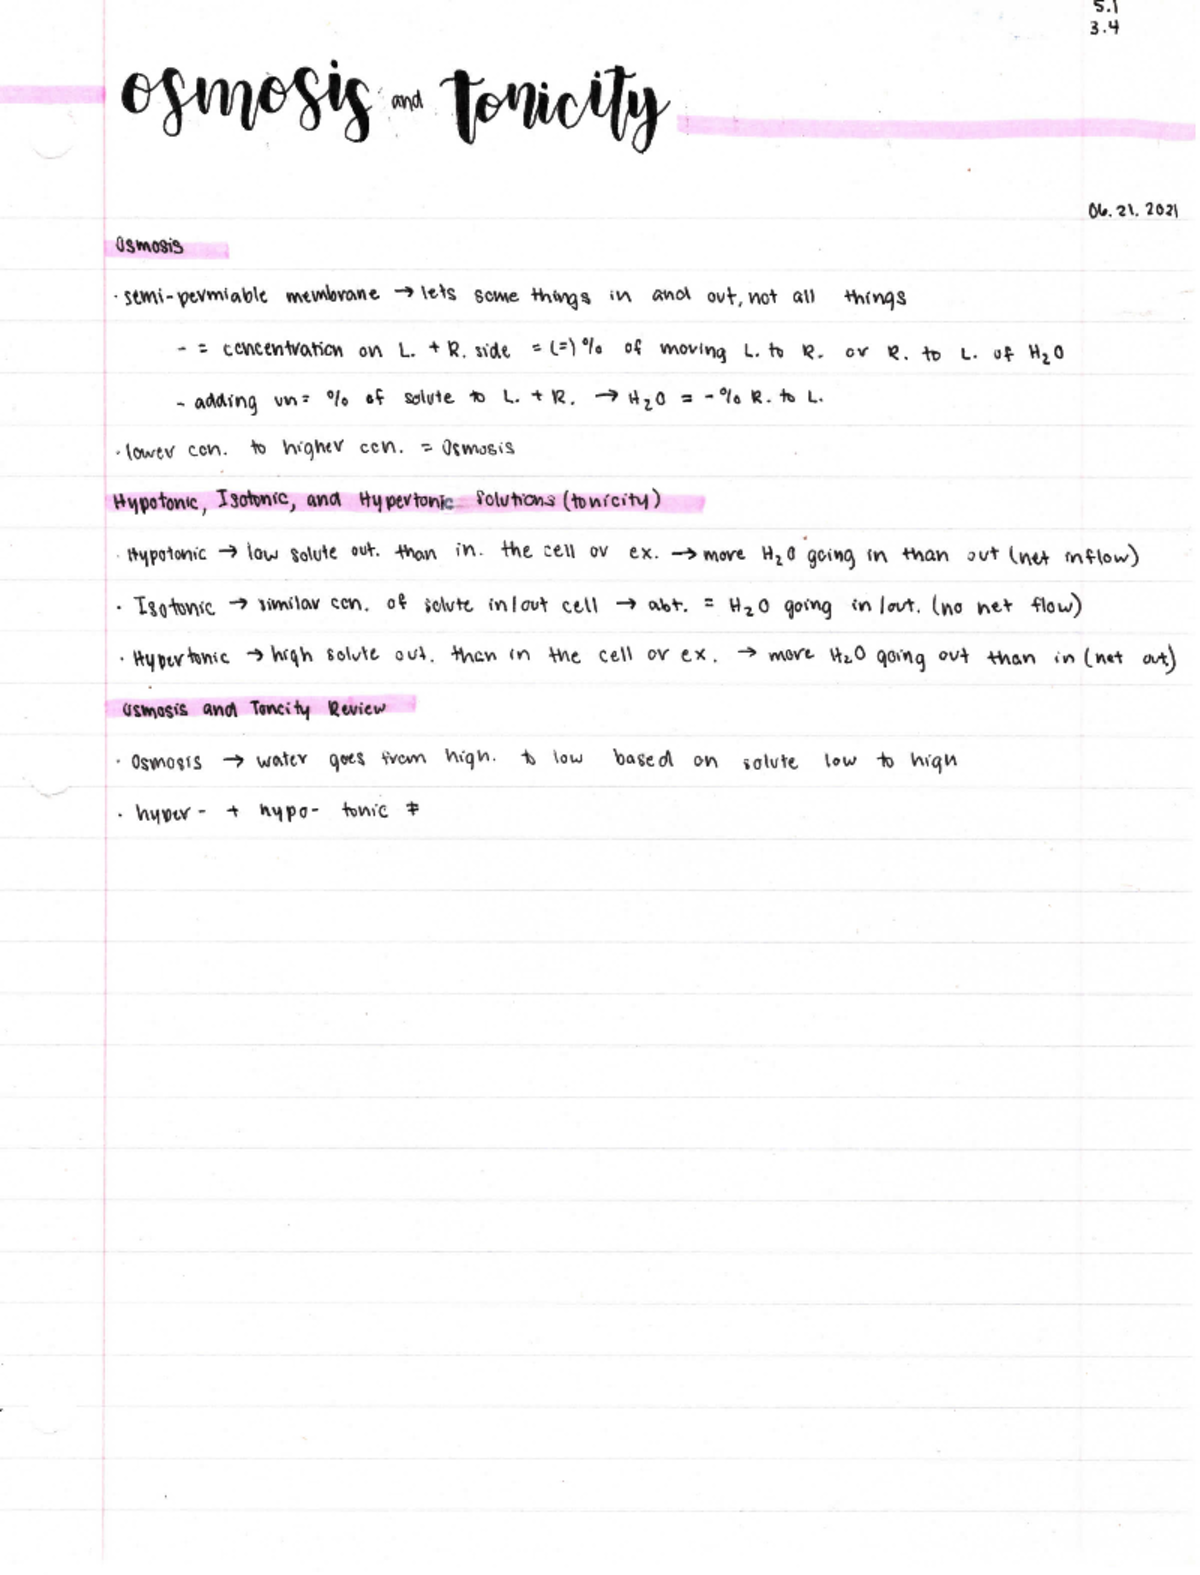 5.1
3.4
osmosis and tonicity
06.21.2021
Osmosis
· semi-permiable membrane → lets some things in and out, not all things
- = concentration on L. + R. side = (=) % of moving L. to R. or R. to L. of H₂O
- adding un= % of solute to L. + R. → H₂O = -% R. to L.
· lower con. to higher con. = Osmosis
Hypotonic, Isotonic, and Hypertonic Solutions (tonicity)
· Hypotonic → low solute out. than in. the cell or ex. → more H₂O going in than out (net inflow)
· Isotonic → similar con. of solute in/out cell → abt. = H₂O going in/out. (no net flow)
· Hypertonic → high solute out. than in the cell or ex. → more H₂O going out than in (net out)
Osmosis and Toncity Review
· Osmosis → water goes from high. to low based on solute low to high
· hyper- + hypo- tonic ≠